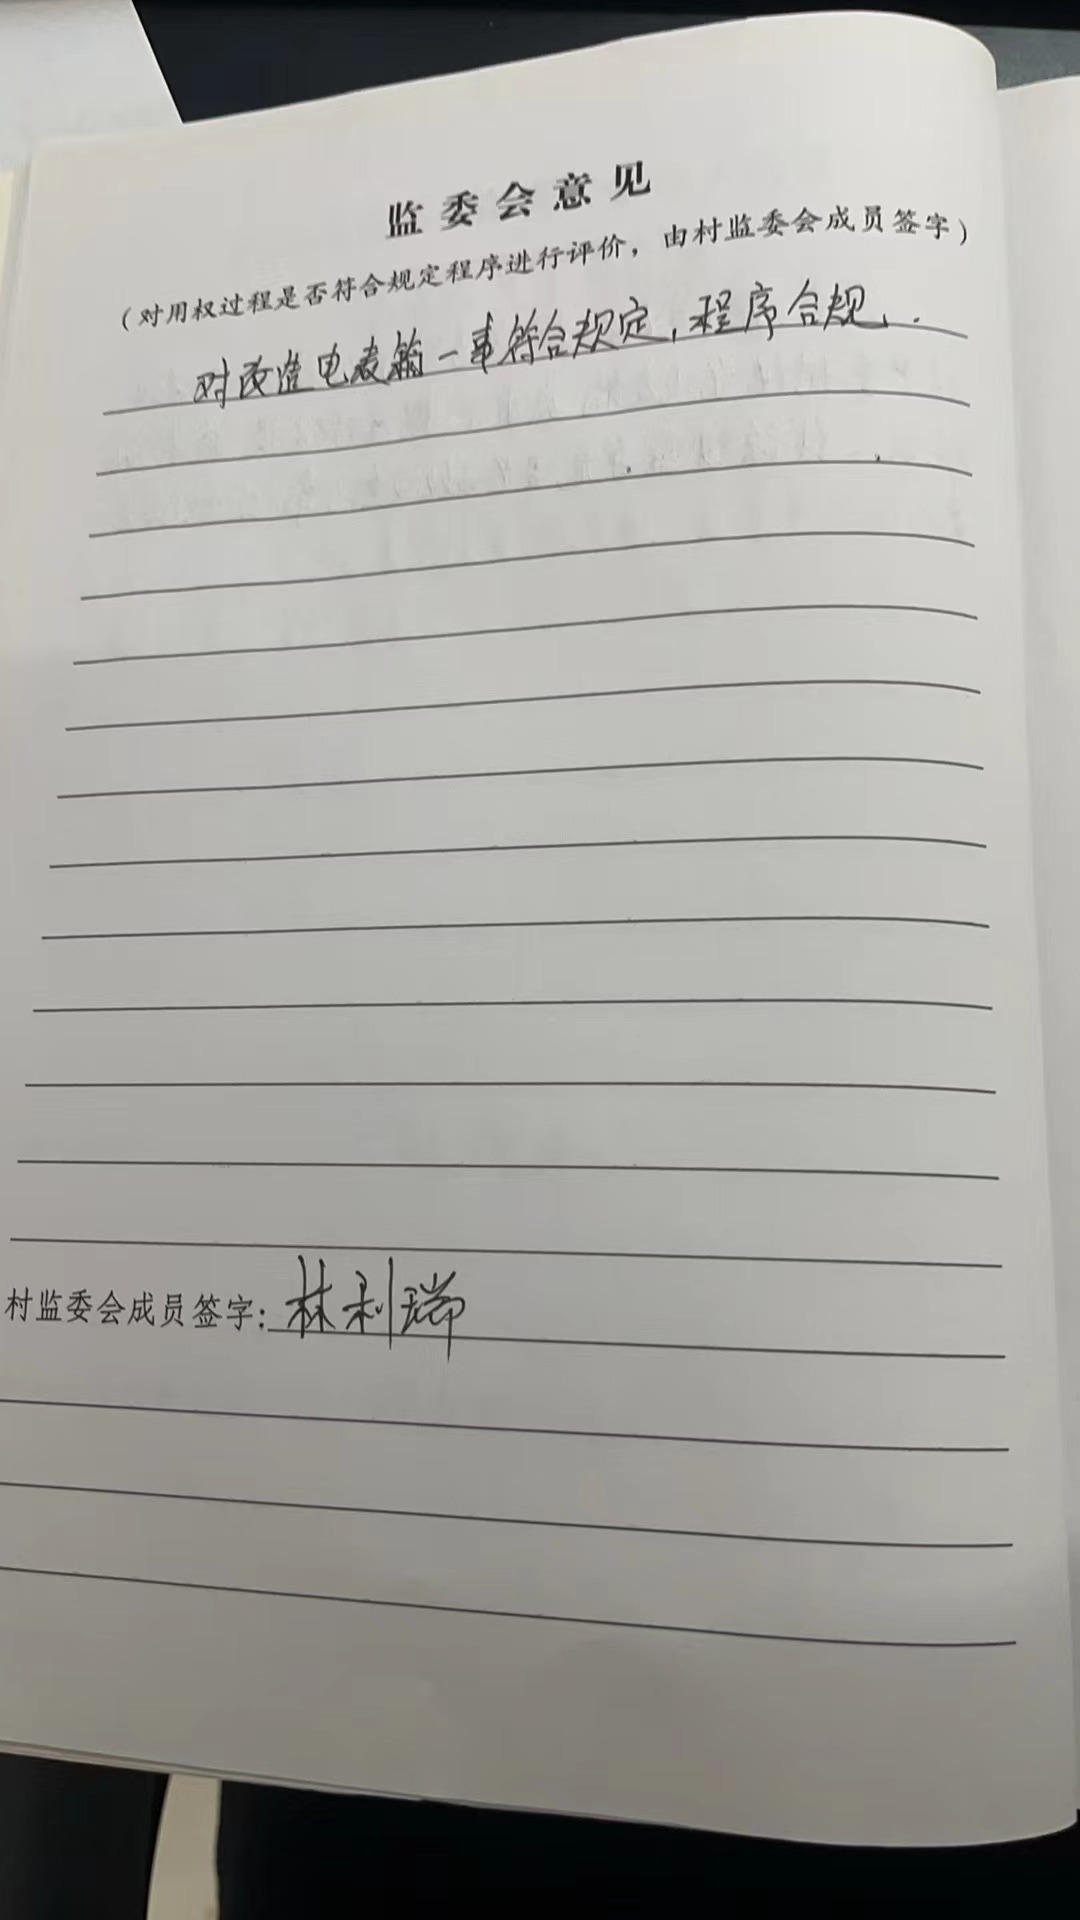 监委会意见
（对用权过程是否符合规定程序进行评价，由村监委会成员签字）
对改造电表箱一事符合规定，程序合规．
村监委会成员签字：林利瑞